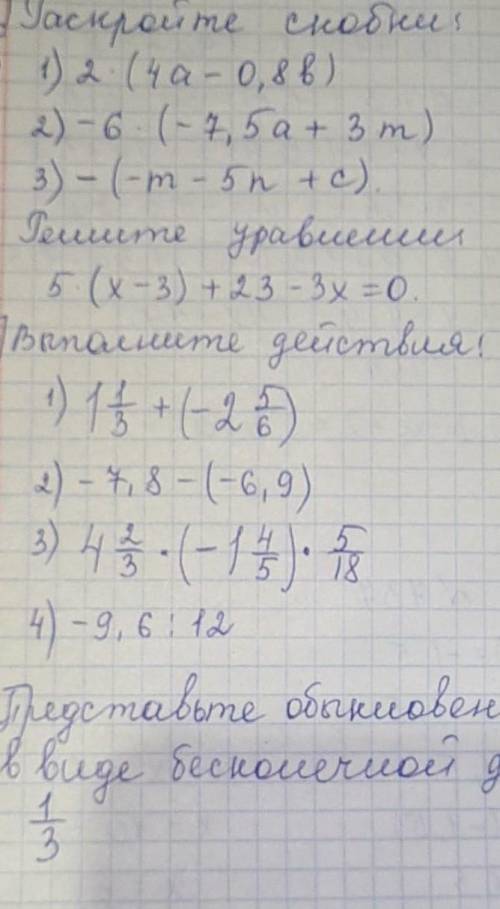 Раскройте скобки:
1) 2·(4a - 0,8b)
2) -6·(-7,5a + 3m)
3) -(-m - 5n + c).
Решите уравнение:
5·(x-3)+23-3x=0.
Выполните действия:
1) 1 1/3 + (-2 5/6)
2) -7,8-(-6,9)
3) 4 2/3 · (-1 4/5) · 5/18
4) -9,6:12
Представьте обыкновен
в виде бесконечной д
1/3